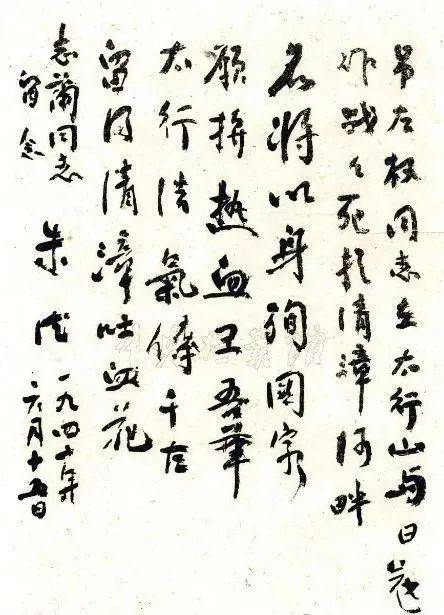 吊左权同志在太行山与日寇
作战々死於清漳河畔
名将以身殉國家
願拚热血卫吾華
太行浩氣傳千古
留得清漳吐血花
志蘭同志
留念
朱德
一九四二年
六月十五日